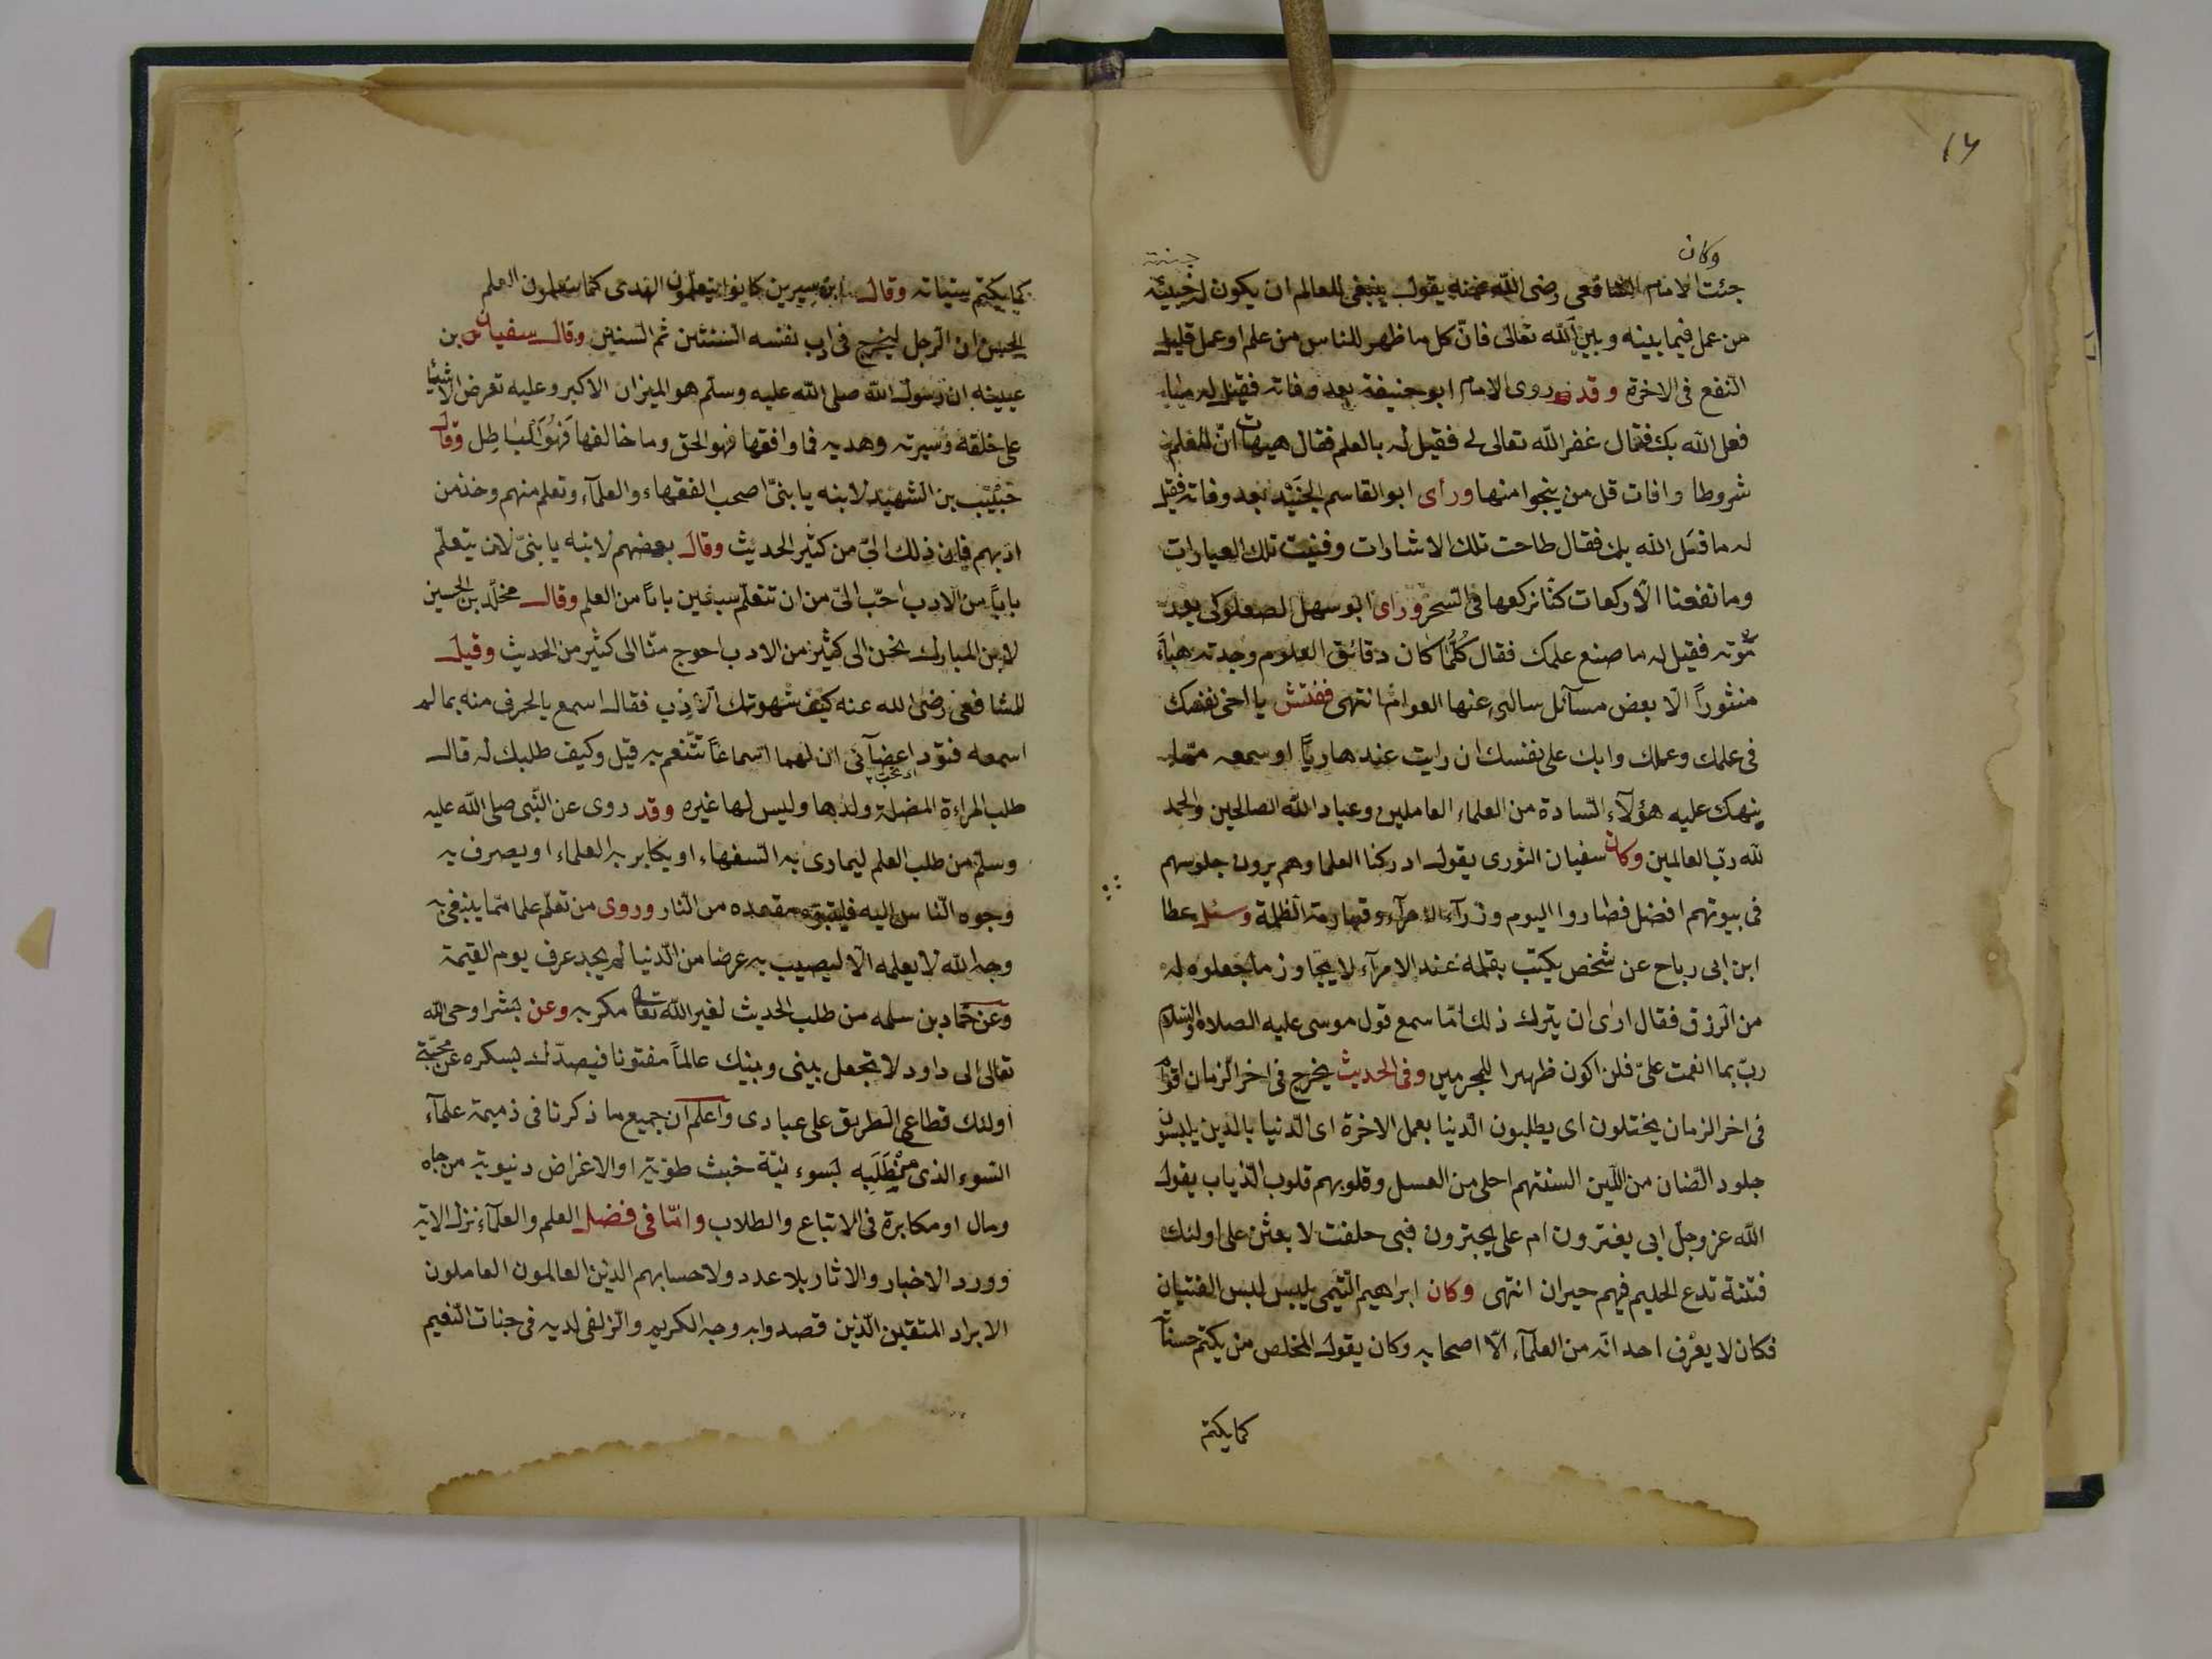 ١٦
وكان
جئت الامام الشافعى رضى الله عنه يقول ينبغى للعالم ان يكون له خبيئة
من عمل فيما بينه وبين الله تعالى فانّ كل ما ظهر للناس من علم او عمل قليل
النفع فى الاخرة وقد روى الامام ابو حنيفة بعد وفاته فقيل له ما
فعل الله بك فقال غفر الله تعالى لى فقيل له بالعلم فقال هيهات انّ للعلم
شروطا وافات قل من ينجوا منها ورأى ابو القاسم الجنيد بعد وفاته فقيل
له ما فعل الله بك فقال طاحت تلك الاشارات وفنيت تلك العبارات
وما نفعنا الّا ركعات كنّا نركعها فى السحر ورأى ابو سهل الصعلوكى بعد
موته فقيل له ما صنع علمك فقال كلّما كان دقائق العلوم وجدته هباءً
منثوراً الّا بعض مسآئل سالنى عنها العوام انتهى ففتش يا اخى نفسك
فى علمك وعملك وابك على نفسك ان رايت عندها ريآ او سمعه
ينهك عليه هؤلآء السادة من العلماء العاملين وعباد الله الصالحين والحمد
لله ربّ العالمين وكان سفيان الثورى يقول ادركنا العلما وهم يرون جلوسهم
فى بيوتهم افضل فصاروا اليوم وزرآء الامرآء وقهارمة الظلمة وسئل عطا
ابن ابى رباح عن شخص يكتب بقلمه عند الامرآء لا يجاوز ما جعلوه له
من الرزق فقال ارى ان يترك ذلك امّا سمع قول موسى عليه الصلاة والسلام
ربّ بما انعمت علىّ فلن اكون ظهيرا للمجرمين وفى الحديث يخرج فى اخر الزمان اقوام
فى اخر الزمان يختلون اى يطلبون الدنيا بعمل الاخرة اى الدنيا بالدين يلبسون
جلود الضان من اللّين السنتهم احلى من العسل وقلوبهم قلوب الذياب يقول
الله عز وجل ابى يغترون ام على يجترون فبى حلفت لا بعثن على اولئك
فتنة تدع الحليم فيهم حيران انتهى وكان ابراهيم التيمى يلبس لبس الفتيان
فكان لا يعرف احد انّه من العلمآء الّا اصحابه وكان يقول المخلص من يكتم حسناته
كما يكتم
كما يكتم سيئاته وقال ابن سيرين كانوا يتعلمون الهدى كما يتعلمون العلم
الحسن ان الرجل ليخرج فى ادب نفسه السنتين ثم السنين وقال سفيان بن
عيينه ان رسول الله صلى الله عليه وسلّم هو الميزان الاكبر وعليه تعرض الاشيا
على خلقه وسيرته وهديه فما وافقها فهو الحق وما خالفها فهو الباطل وقال
حبيب بن الشهيد لابنه يا بنىّ اصحب الفقهاء والعلمآء وتعلم منهم وخذ من
ادبهم فان ذلك الىّ من كثير الحديث وقال بعضهم لابنه يا بنىّ لان يتعلّم
باباً من الادب احبّ الىّ من ان تتعلّم سبعين باباً من العلم وقال مخلّد بن الحسين
لابن المبارك نحن الى كثير من الادب احوج منّا الى كثير من الحديث وقيل
للشافعى رضى الله عنه كيف شهوتك الادب فقال اسمع بالحرف منه بما لم
اسمعه فتودّ اعضآئى ان لهما اسماعاً تتنعم به قيل وكيف طلبك له قال
طلب المراءة المضلة ولدها وليس لها غيره وقد روى عن النّبى صلى الله عليه
وسلّم من طلب العلم ليمارى به السفهاء او يكابر به العلماء او يصرف به
وجوه النّاس اليه فليتبوّء مقعده من النّار وروى من تعلّم علما ممّا يبتغى به
وجه الله لا يعلمه الّا ليصيب به عرضا من الدّنيا لم يجد عرف يوم القيمة
وعن حمّاد بن سلمه من طلب الحديث لغير الله تعالى مكر به وعن بشر اوحى الله
تعالى الى داود لا تجعل بينى وبينك عالماً مفتونا فيصدّك بسكره عن محبّتى
اولئك قطاع الطريق على عبادى واعلم ان جميع ما ذكرنا فى ذميمة علمآء
السّوء الذى من طلبه لسوء نيّة خبث طويّة او الاغراض دنيوية من جاه
ومال او مكابرة فى الاتباع والطلاب وامّا فى فضل العلم والعلمآء نزل الاية
وورد الاخبار والاثار بلا عدد ولا حساب بهم الذين العالمون العاملون
الابراد المتقين الّذين قصدوا به وجه الكريم والزلفى لديه فى جنات النّعيم